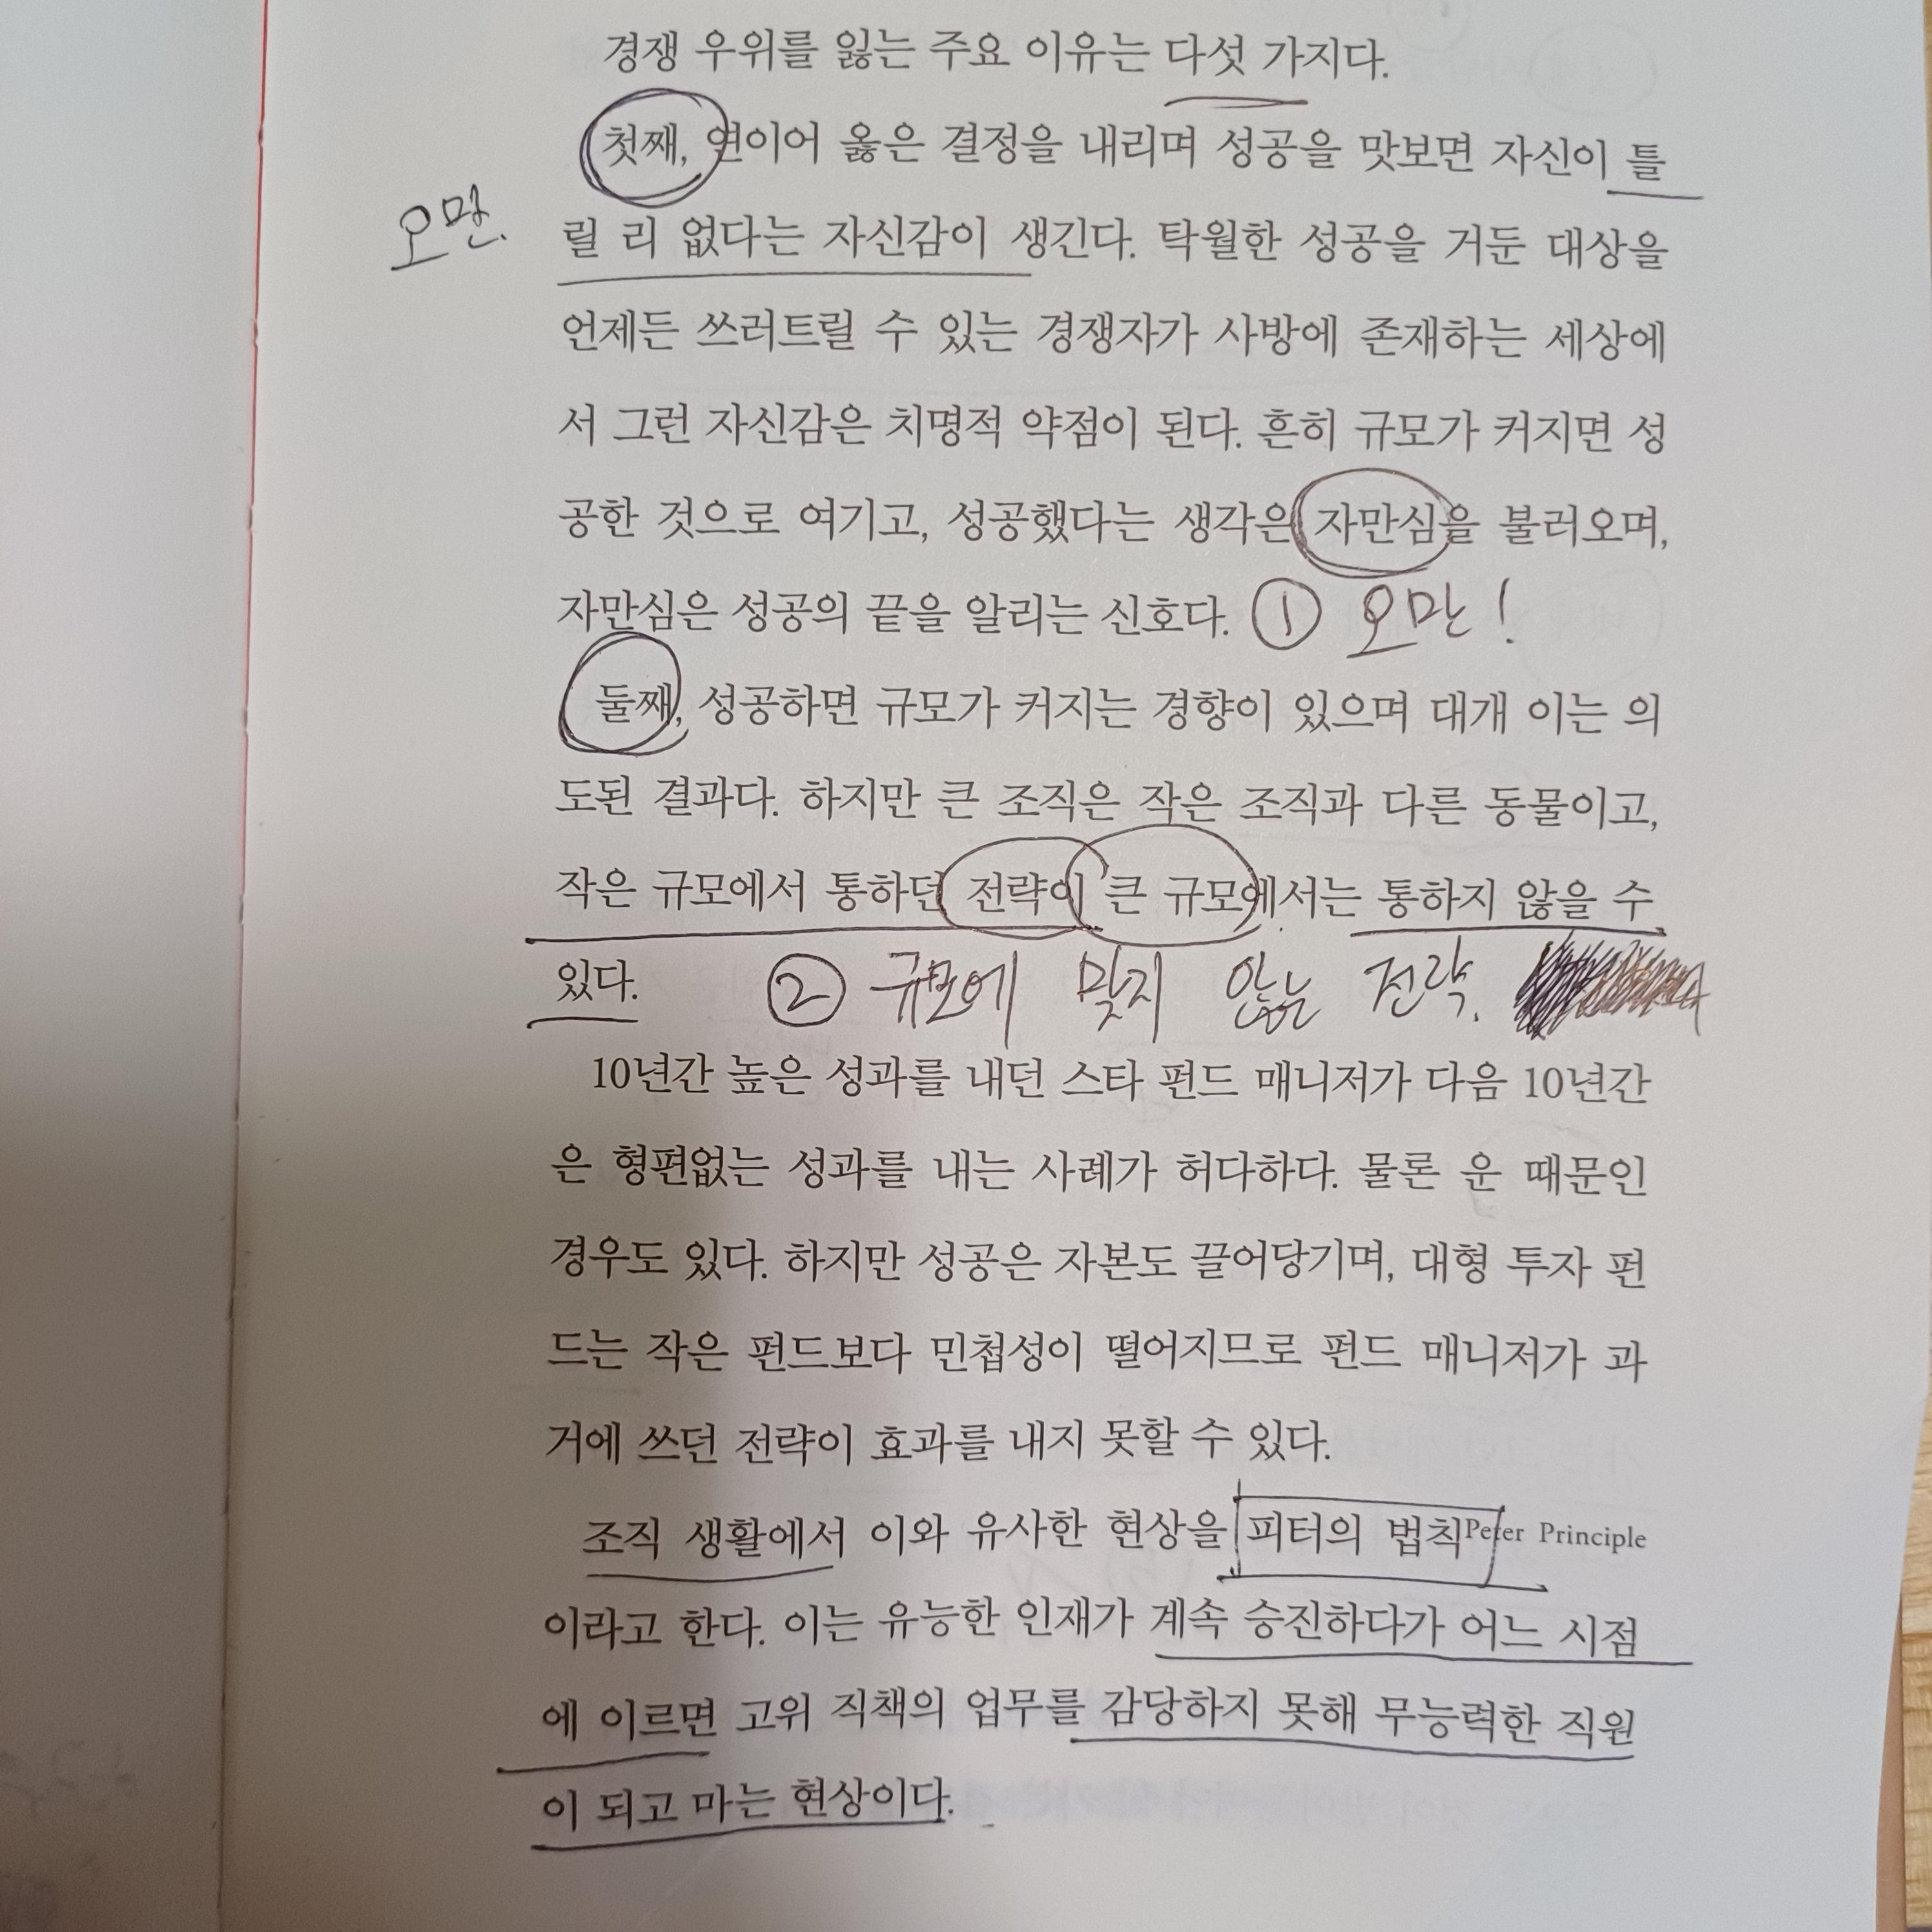 경쟁 우위를 잃는 주요 이유는 다섯 가지다.
첫째, 연이어 옳은 결정을 내리며 성공을 맛보면 자신이 틀
오만.
릴 리 없다는 자신감이 생긴다. 탁월한 성공을 거둔 대상을
언제든 쓰러트릴 수 있는 경쟁자가 사방에 존재하는 세상에
서 그런 자신감은 치명적 약점이 된다. 흔히 규모가 커지면 성
공한 것으로 여기고, 성공했다는 생각은 자만심을 불러오며,
자만심은 성공의 끝을 알리는 신호다. ① 오만!
둘째, 성공하면 규모가 커지는 경향이 있으며 대개 이는 의
도된 결과다. 하지만 큰 조직은 작은 조직과 다른 동물이고,
작은 규모에서 통하던 전략이 큰 규모에서는 통하지 않을 수
있다. ② 규모에 맞지 않는 전략.
10년간 높은 성과를 내던 스타 펀드 매니저가 다음 10년간
은 형편없는 성과를 내는 사례가 허다하다. 물론 운 때문인
경우도 있다. 하지만 성공은 자본도 끌어당기며, 대형 투자 펀
드는 작은 펀드보다 민첩성이 떨어지므로 펀드 매니저가 과
거에 쓰던 전략이 효과를 내지 못할 수 있다.
조직 생활에서 이와 유사한 현상을 피터의 법칙Peter Principle
이라고 한다. 이는 유능한 인재가 계속 승진하다가 어느 시점
에 이르면 고위 직책의 업무를 감당하지 못해 무능력한 직원
이 되고 마는 현상이다.